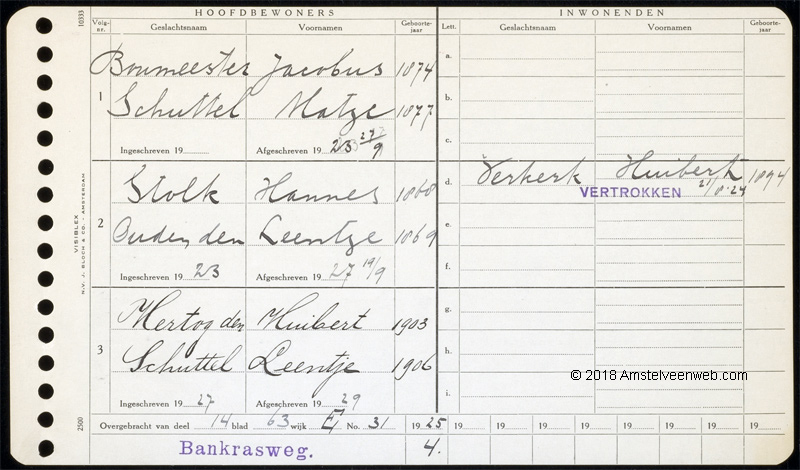 HOOFDBEWONERS INWONENDEN
Volg-nr. Geslachtsnaam Voornamen Geboorte-jaar Lett. Geslachtsnaam Voornamen Geboorte-jaar
10333
a.
Boumeester Jacobus 1874
1
b.
Schuttel Matze 1877
c.
Ingeschreven 19 Afgeschreven 1923 27/9
d. Verkerk Huibert 1894
VERTROKKEN 21/8 '24
Stolk Hannes 1868
2
e.
Ouden den Leentze 1869
f.
Ingeschreven 1923 Afgeschreven 1927 19/9
g.
Hertog den Huibert 1903
3
h.
Schuttel Leentje 1906
© 2018 Amstelveenweb.com
i.
Ingeschreven 1927 Afgeschreven 1929
Overgebracht van deel 14 blad 63 wijk E No. 31 1925 19 19 19 19 19 19 19 19
Bankrasweg. 4.
VISIBLEX
N.V. J. BLOCH & CO. - AMSTERDAM
2500